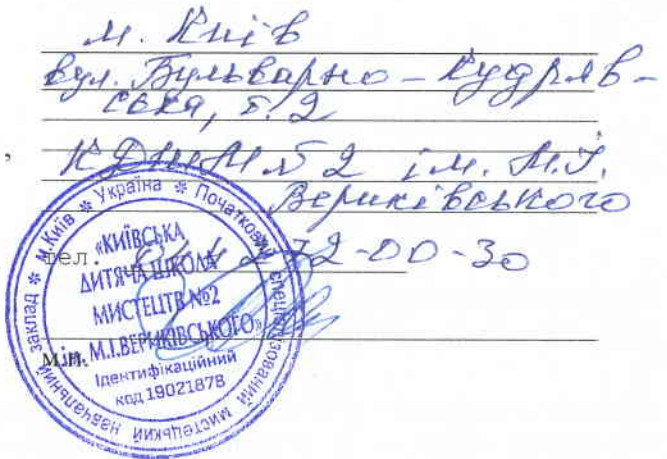 м. Київ
вул. Бульварно-Кудряв-
ська, б. 2
,
КДШМ №2 ім. М.І.
Вериківського
тел. 272-00-30
м.п.
м.Київ * Україна * Початковий спеціалізований мистецький навчальний заклад *
«КИЇВСЬКА
ДИТЯЧА ШКОЛА
МИСТЕЦТВ №2
ІМ. М.І.ВЕРИКІВСЬКОГО»
Ідентифікаційний
код 19021878